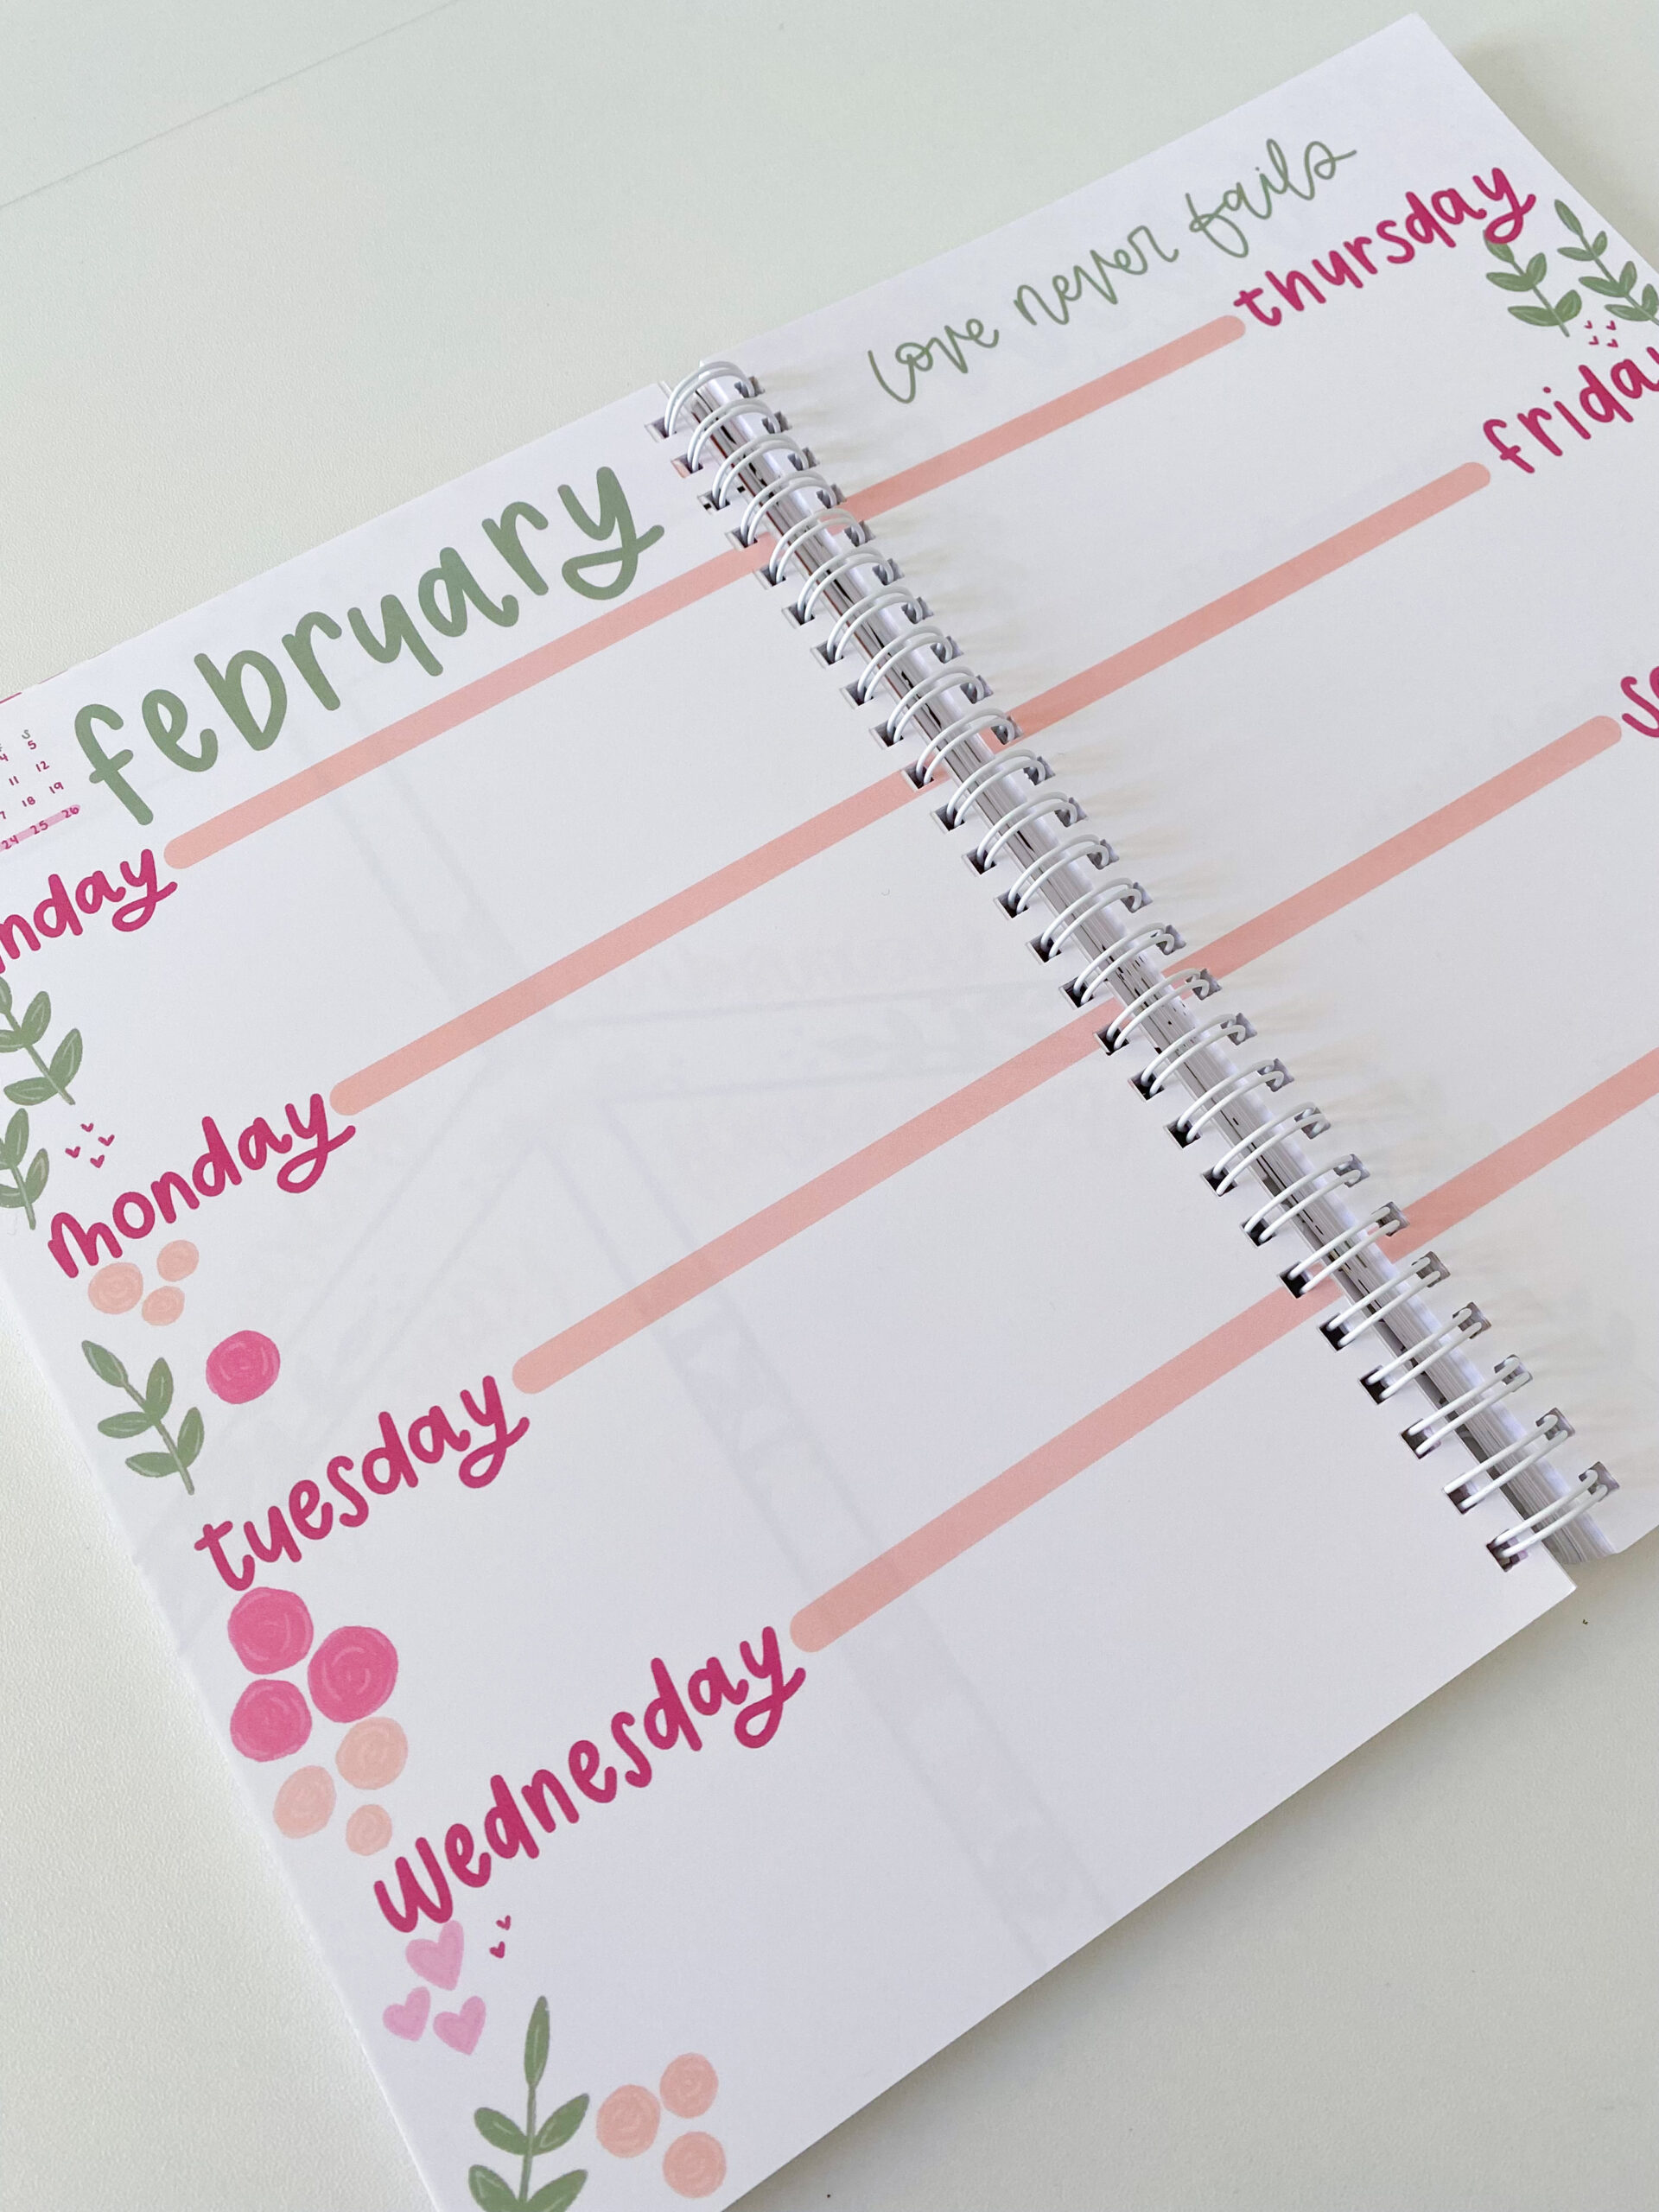 february
S
4 5
11 12
18 19
24 25 26
monday
tuesday
wednesday
love never fails
thursday